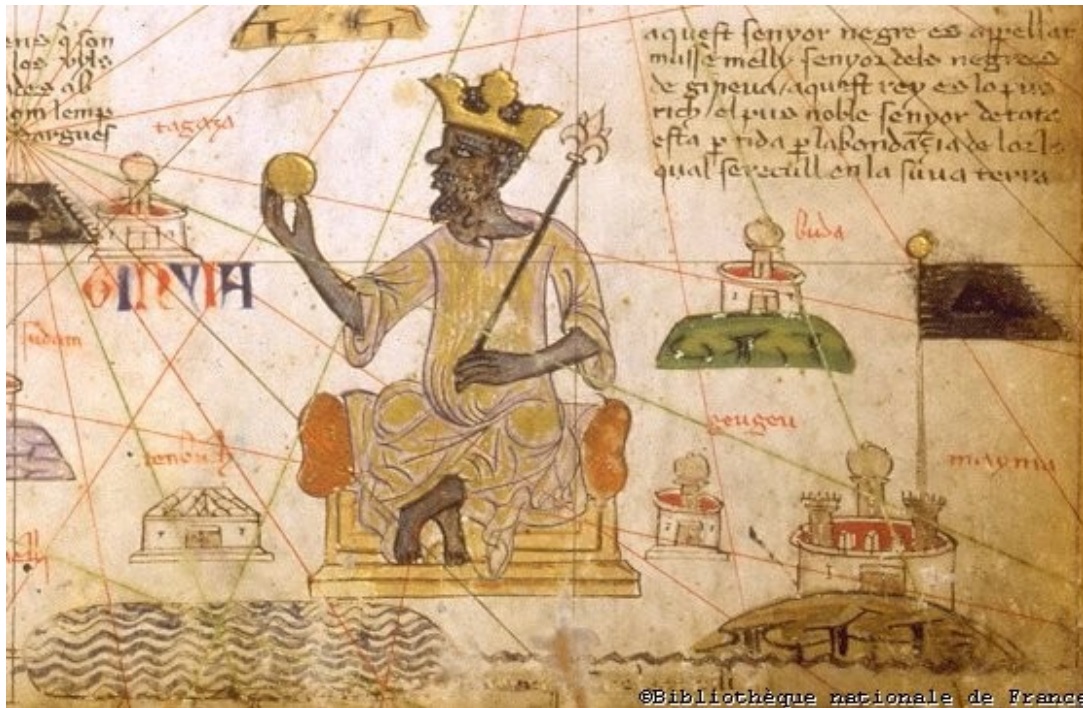 aquest senyor negre es appellat
musse melly senyor dels negres
de gineua / aquest rey es lo pus
rich el pus noble senyor de tota
esta ptida p labondaçia de lor lo
qual se recull en la suua terra
tagaza
buda
GINYIA
sudam
geugeu
tenbuch
mayma
©Bibliothèque nationale de France